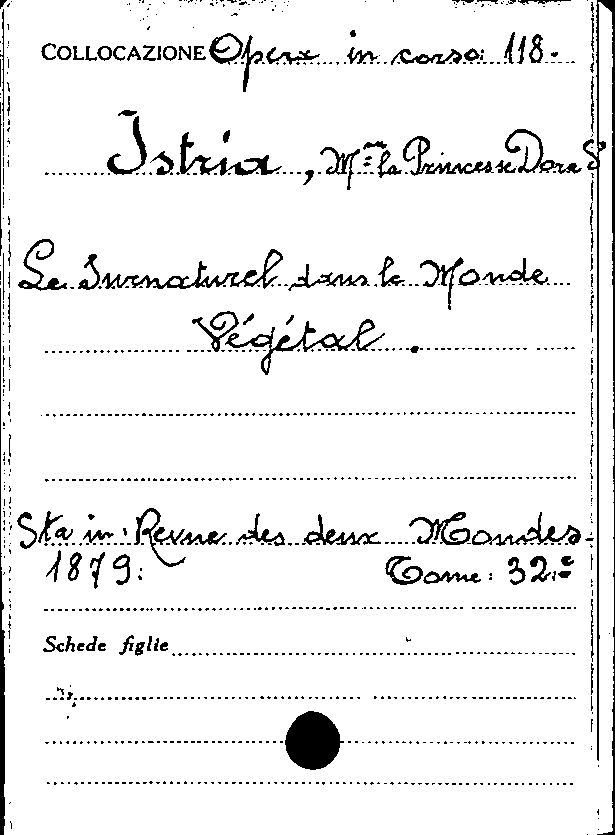 COLLOCAZIONE Opere in corso: 118.
Istria, Mme la Princesse Dora d'
Le Surnaturel dans le Monde
Végétal.
Sta in: Revue des deux Mondes.
1879. Tome: 32.e
Schede figlie